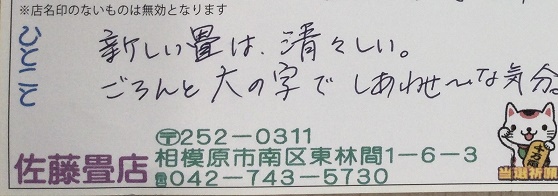 ※店名印のないものは無効となります
ひとこと
新しい畳は、清々しい。
ごろんと大の字でしあわせ〜な気分。
佐藤畳店
〒252-0311
相模原市南区東林間1-6-3
☎042-743-5730
千万両
当選祈願